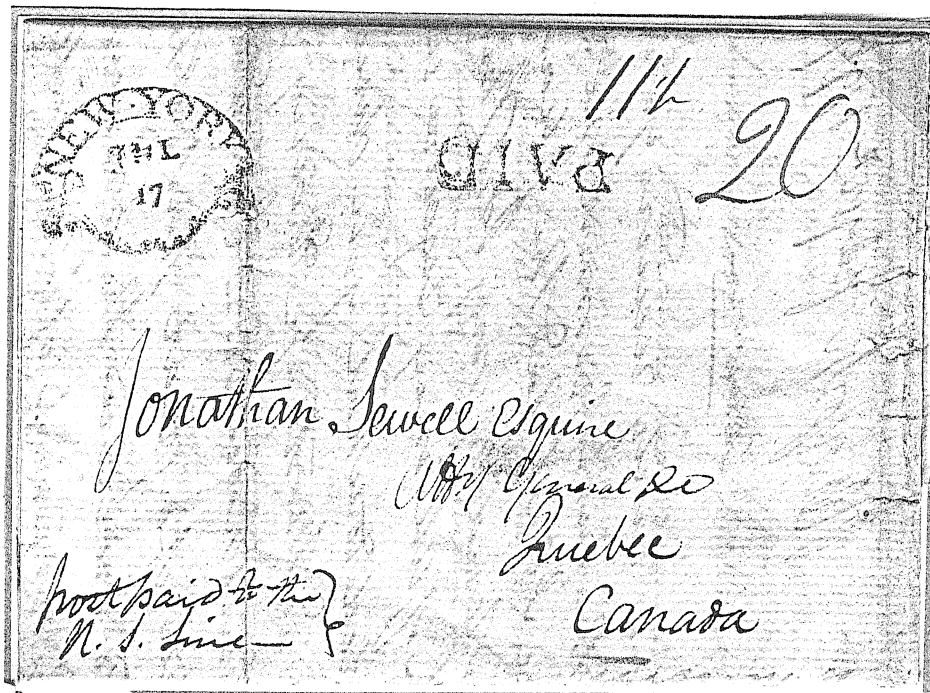 NEW-YORK
17
11½
PAID
20
Jonathan Sewell Esquire
Atty General &c
Quebec
Canada
post paid to the
U. S. Line